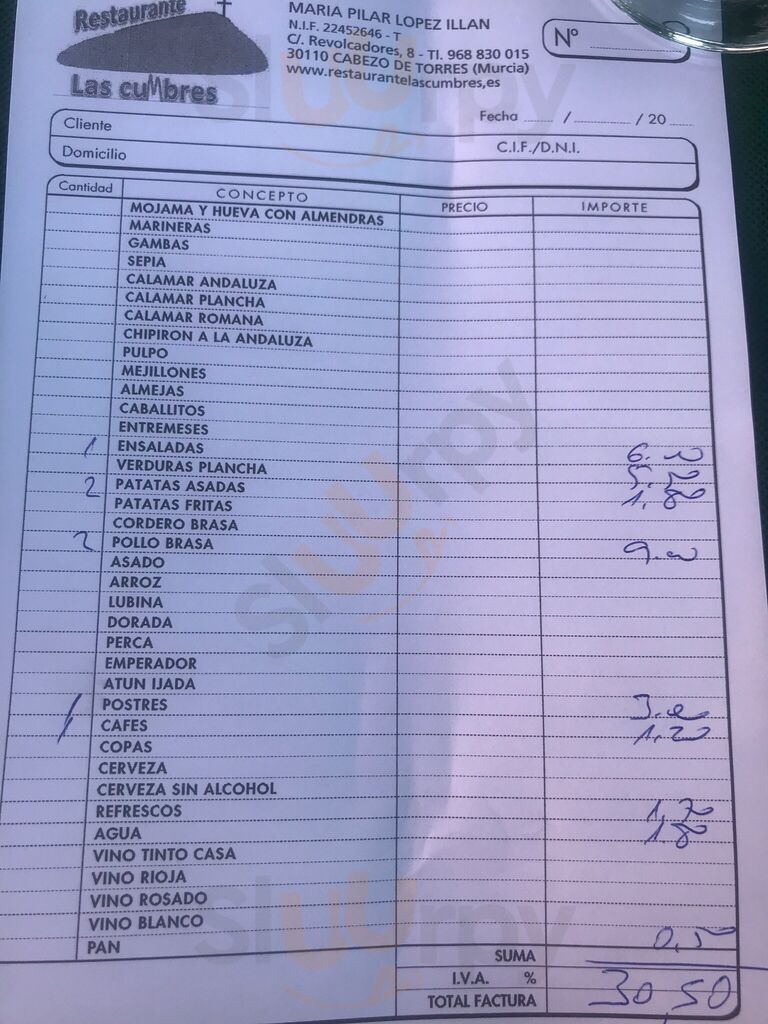 Restaurante
Las cuMbres
MARIA PILAR LOPEZ ILLAN
N.I.F. 22452646 - T
C/. Revolcadores, 8 - Tl. 968 830 015
30110 CABEZO DE TORRES (Murcia)
www.restaurantelascumbres,es
Nº
Fecha / / 20
Cliente
Domicilio C.I.F./D.N.I.
Cantidad CONCEPTO PRECIO IMPORTE
MOJAMA Y HUEVA CON ALMENDRAS
MARINERAS
GAMBAS
SEPIA
CALAMAR ANDALUZA
CALAMAR PLANCHA
CALAMAR ROMANA
CHIPIRON A LA ANDALUZA
PULPO
MEJILLONES
ALMEJAS
CABALLITOS
ENTREMESES
1 ENSALADAS 6.00
VERDURAS PLANCHA 5.50
2 PATATAS ASADAS 1,80
PATATAS FRITAS
CORDERO BRASA
2 POLLO BRASA 9.00
ASADO
ARROZ
LUBINA
DORADA
PERCA
EMPERADOR
ATUN IJADA
1 POSTRES 3.00
1 CAFES 1,20
COPAS
CERVEZA
CERVEZA SIN ALCOHOL
REFRESCOS 1,70
AGUA 1.80
VINO TINTO CASA
VINO RIOJA
VINO ROSADO
VINO BLANCO
PAN 0,5
SUMA
I.V.A. %
TOTAL FACTURA 30,50
slUUrpy
slUUrpy
slUUrpy